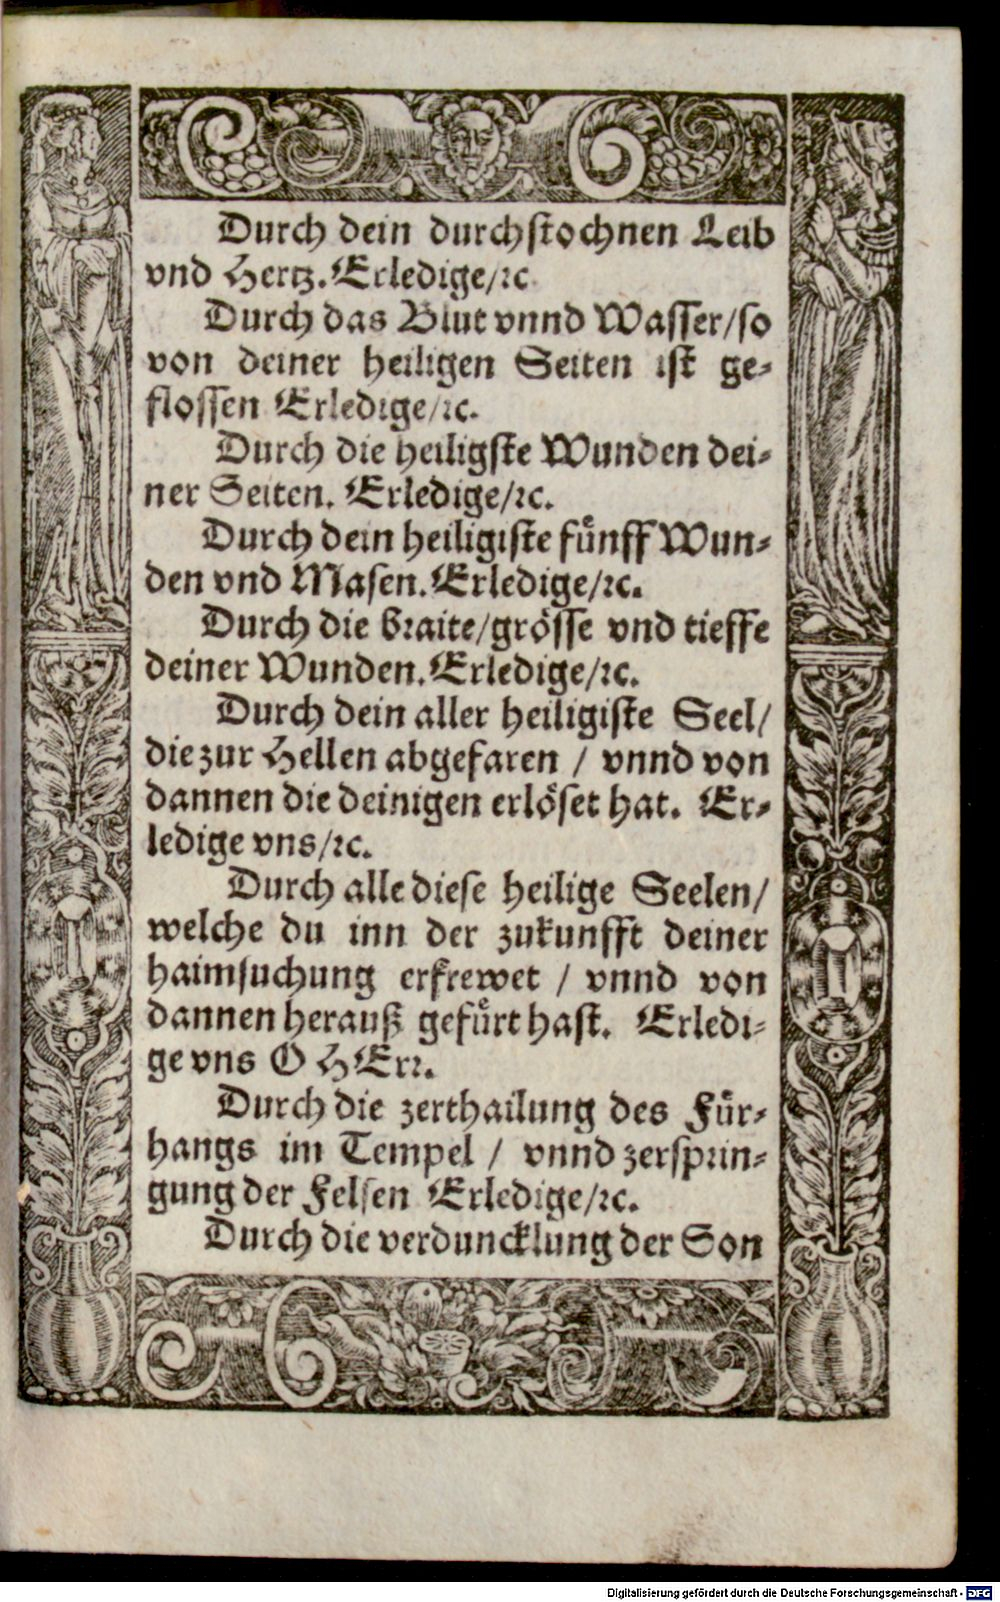 Durch dein durchstochnen Leib
vnd Hertz. Erledige/ꝛc.
Durch das Blut vnnd Wasser/so
von deiner heiligen Seiten ist ge⸗
flossen Erledige/ꝛc.
Durch die heiligste Wunden dei⸗
ner Seiten. Erledige/ꝛc.
Durch dein heiligiste fuͤnff Wun⸗
den vnd Masen. Erledige/ꝛc.
Durch die braite/groͤsse vnd tieffe
deiner Wunden. Erledige/ꝛc.
Durch dein aller heiligiste Seel/
die zur Hellen abgefaren / vnnd von
dannen die deinigen erloͤset hat. Er⸗
ledige vns/ꝛc.
Durch alle diese heilige Seelen/
welche du inn der zukunfft deiner
haimsuchung erfrewet / vnnd von
dannen herauß gefuͤrt hast. Erledi⸗
ge vns O HErꝛ.
Durch die zerthailung des Fuͤr⸗
hangs im Tempel / vnnd zersprin⸗
gung der Felsen Erledige/ꝛc.
Durch die verduncklung der Son
Digitalisierung gefördert durch die Deutsche Forschungsgemeinschaft - DFG